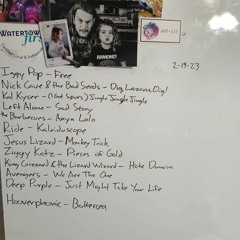 WATERTOWN
first
RAMONES
2-19-23
Iggy Pop - Free
Nick Cave & the Bad Seeds - Dig, Lazarus, Dig!
Kid Kyser - (I Got Spurs) Jingle Jangle Jingle
Left Alone - Sad Story
the Barbecues - Anya Lala
Ride - Kaleidoscope
Jesus Lizard - Monkey Trick
Ziggy Katz - Pieces of Gold
King Gizzard & the Lizard Wizard - Hate Dancin
Avengers - We Are The One
Deep Purple - Just Might Take Your Life
Hooverphonic - Battersea